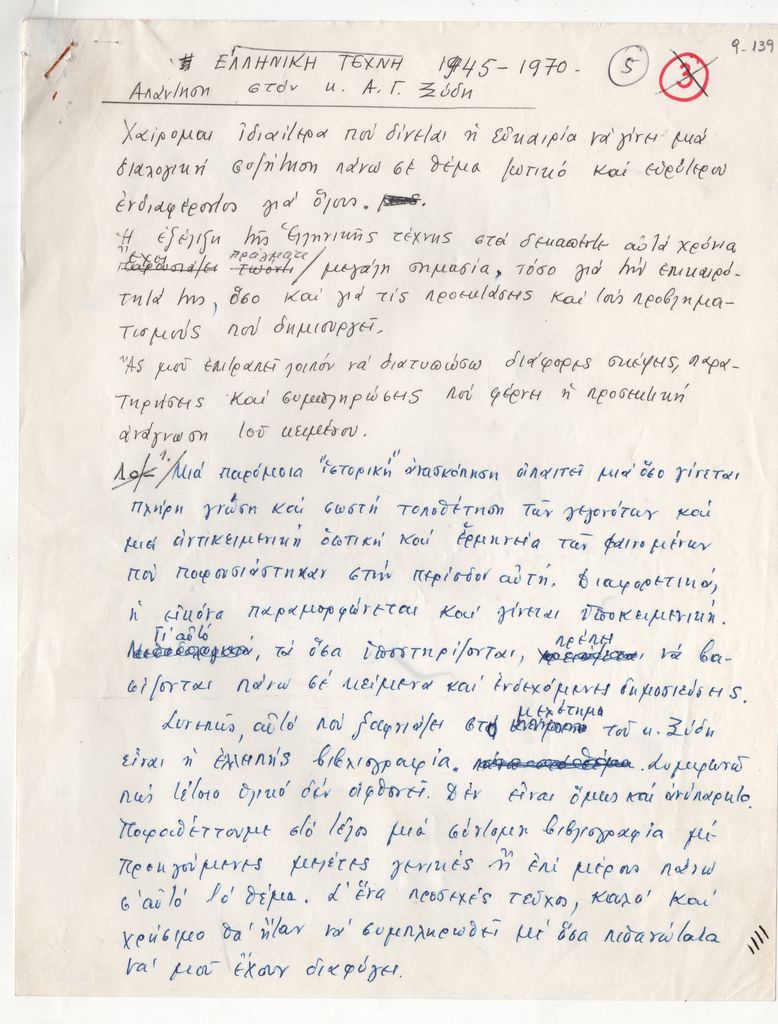 9-139
# ΕΛΛΗΝΙΚΗ ΤΕΧΝΗ 1945-1970. 5 3
Απάντηση στόν κ. Α. Γ. Ξύδη
Χαίρομαι ἰδιαίτερα πού δίνεται ἡ εὐκαιρία νά γίνει μιά
διαλογική συζήτηση πάνω σέ θέμα ζωτικό καί εὐρύτερου
ἐνδιαφέροντος γιά ὅλους.
Ἡ ἐξέλιξη τῆς Ἑλληνικῆς τέχνης στά δεκαπέντε αὐτά χρόνια
ἔχει πράγματι
παρουσιάζει / μεγάλη σημασία, τόσο γιά τήν ἐπικαιρό-
τητά της, ὅσο καί γιά τίς προεκτάσεις καί τούς προβλημα-
τισμούς πού δημιουργεῖ.
Ἄς μοῦ ἐπιτραπεῖ λοιπόν νά διατυπώσω διάφορες σκέψεις, παρα-
τηρήσεις καί συμπληρώσεις πού φέρνει ἡ προσεκτική
ἀνάγνωση τοῦ κειμένου.
1. Μιά παρόμοια "ἱστορική" ἀνασκόπηση ἀπαιτεῖ μιά ὅσο γίνεται
πλήρη γνώση καί σωστή τοποθέτηση τῶν γεγονότων καί
μιά ἀντικειμενική ὀπτική καί ἑρμηνεία τῶν φαινομένων
πού παρουσιάστηκαν στήν περίοδον αὐτή. Διαφορετικά,
ἡ εἰκόνα παραμορφώνεται καί γίνεται ὑποκειμενική.
Γι' αὐτό πρέπει
, τά ὅσα ὑποστηρίζονται, νά βα-
σίζονται πάνω σέ κείμενα καί ἐνδεχόμενες δημοσιεύσεις.
μελέτημα
Συνεπῶς, αὐτό πού ξαφνιάζει στό τοῦ κ. Ξύδη
εἶναι ἡ ἐλλιπής βιβλιογραφία. Συμφωνῶ
πώς τέτοιο ὑλικό δέν ἀφθονεῖ. Δέν εἶναι ὅμως καί ἀνύπαρκτο.
Παραθέττουμε στό τέλος μιά σύντομη βιβλιογραφία μέ
προηγούμενες μελέτες γενικές ἤ ἐπί μέρους πάνω
σ' αὐτό τό θέμα. Σ' ἕνα προσεχές τεῦχος, καλό καί
χρήσιμο θά ἦταν νά συμπληρωθεῖ μέ ὅσα πιθανώτατα
νά μοῦ ἔχουν διαφύγει.